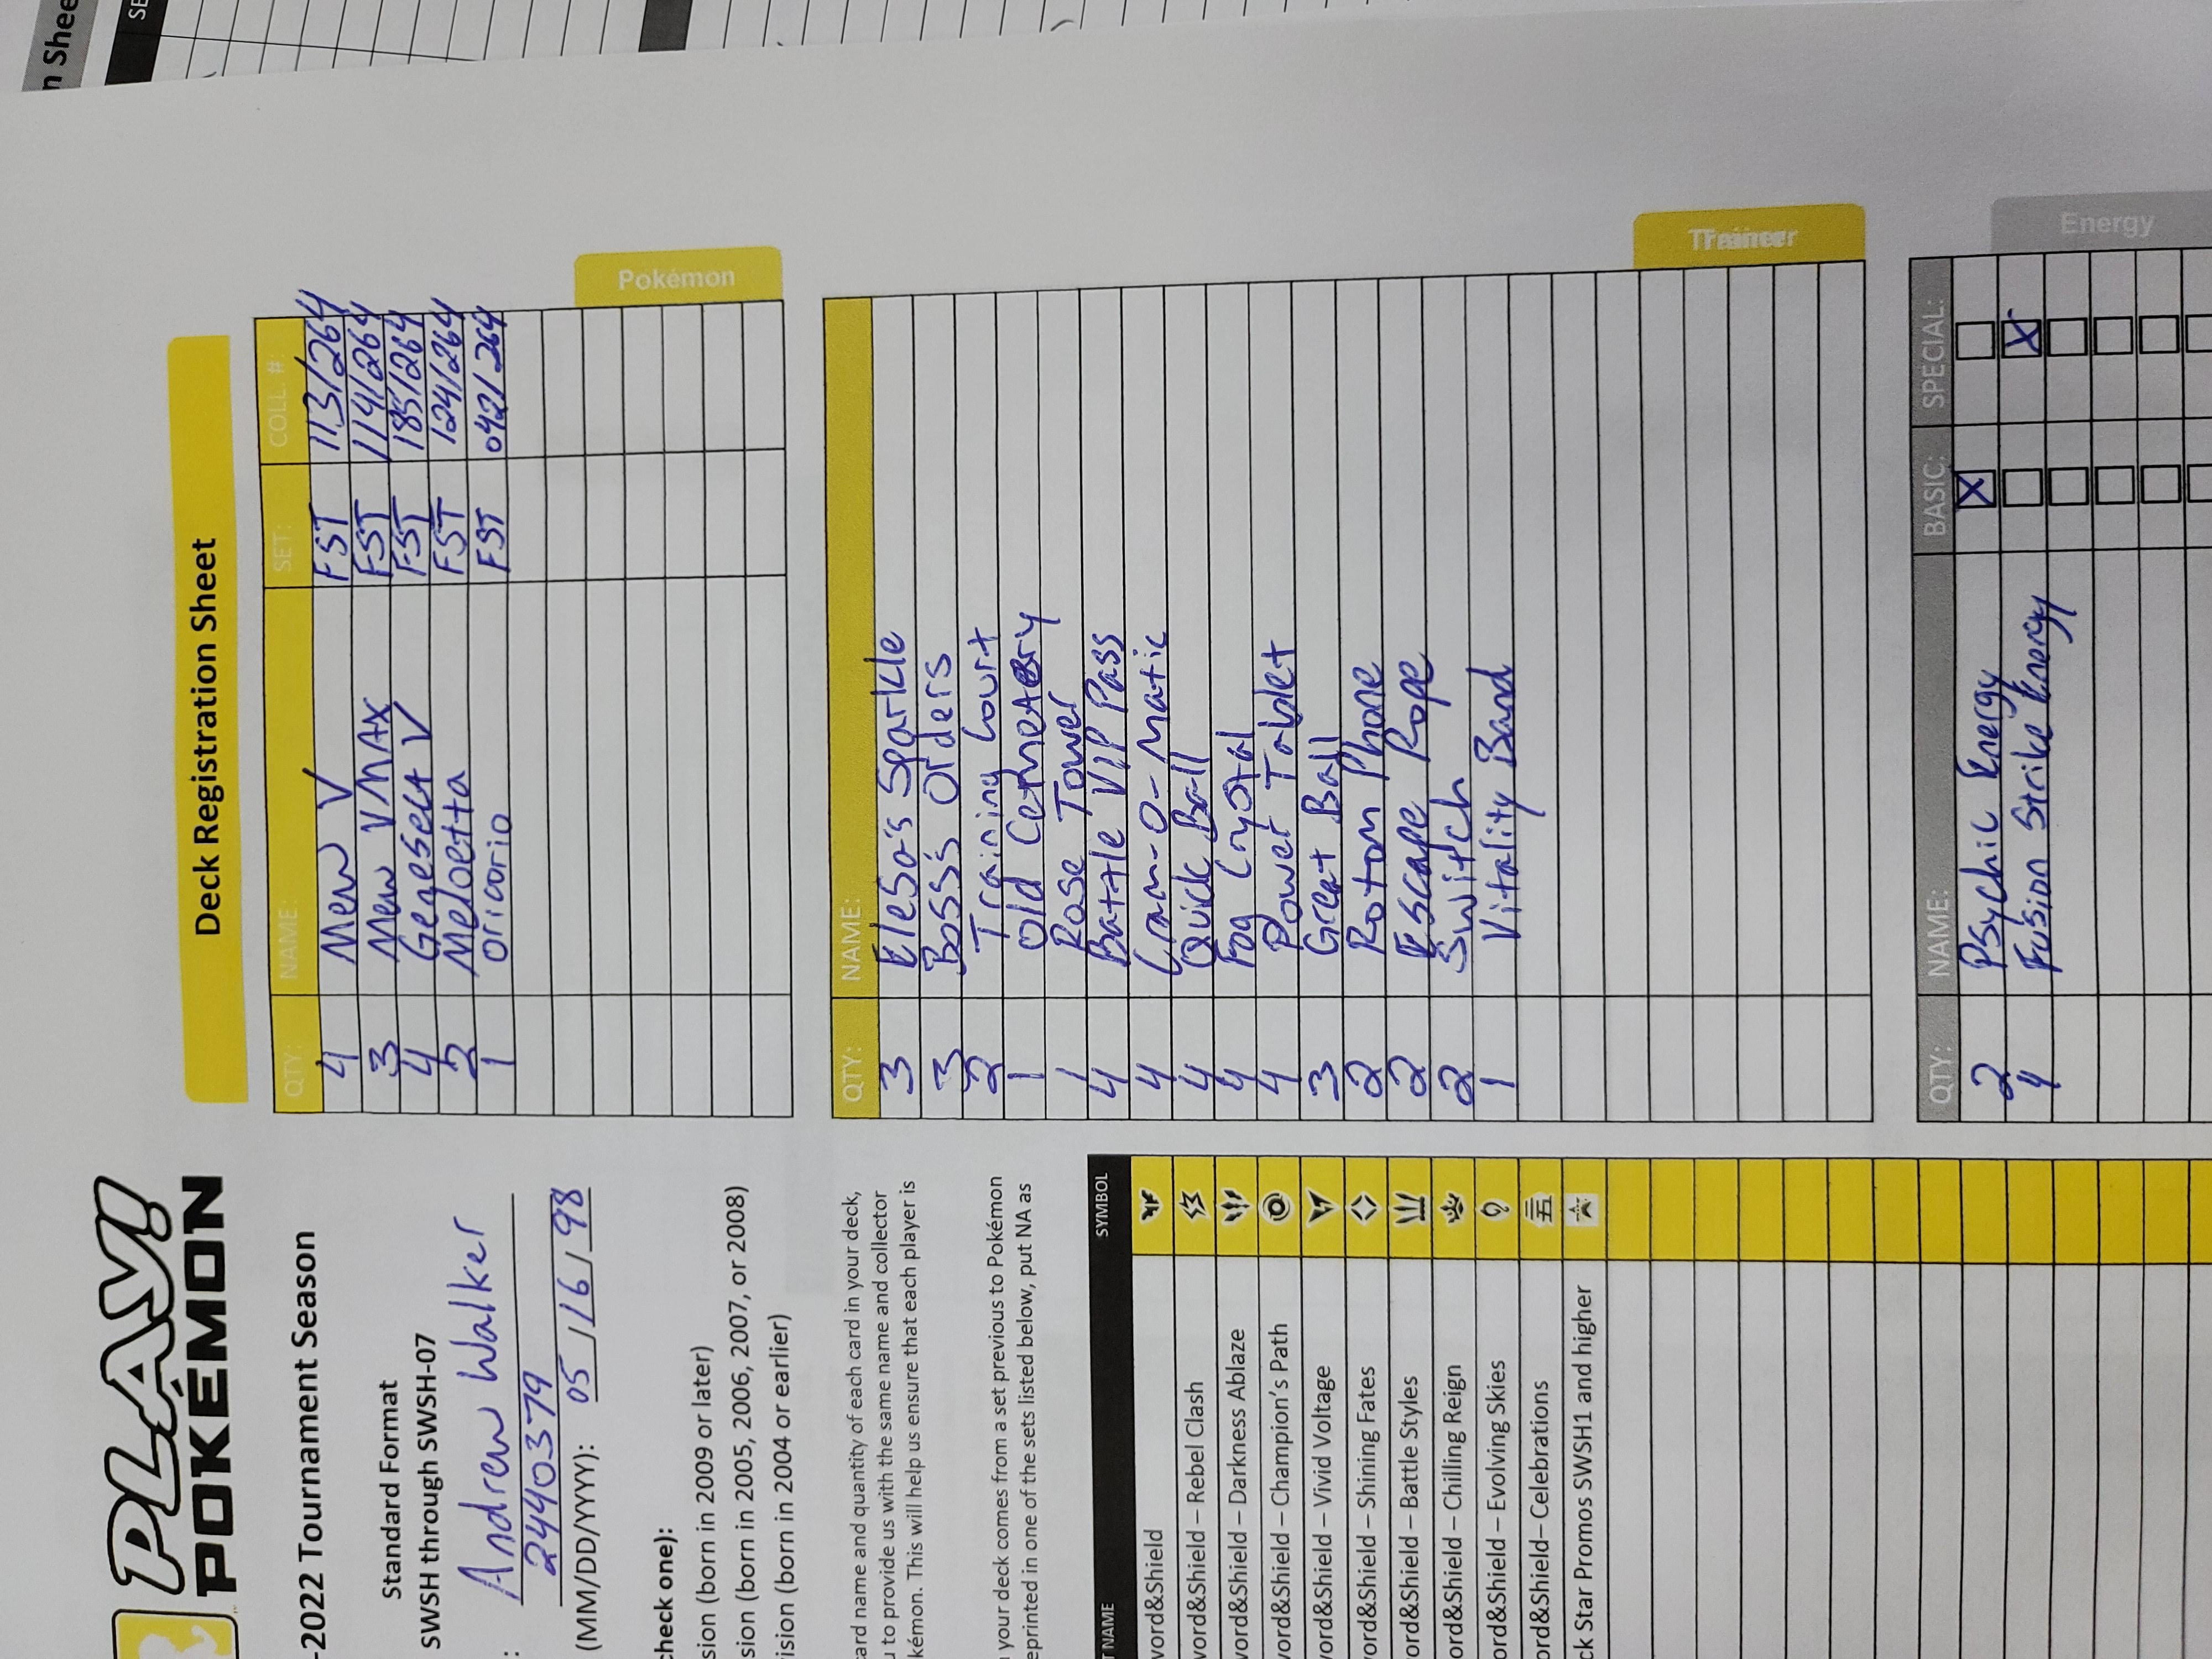 PLAY!
POKÉMON
-2022 Tournament Season
Standard Format
SWSH through SWSH-07
: Andrew Walker
2440379
(MM/DD/YYYY): 05/16/98
check one):
sion (born in 2009 or later)
sion (born in 2005, 2006, 2007, or 2008)
ision (born in 2004 or earlier)
card name and quantity of each card in your deck,
u to provide us with the same name and collector
kémon. This will help us ensure that each player is
your deck comes from a set previous to Pokémon
eprinted in one of the sets listed below, put NA as
T NAME SYMBOL
word&Shield
word&Shield – Rebel Clash
word&Shield – Darkness Ablaze
word&Shield – Champion's Path
word&Shield – Vivid Voltage
ord&Shield – Shining Fates
ord&Shield – Battle Styles
ord&Shield – Chilling Reign
ord&Shield – Evolving Skies
ord&Shield– Celebrations
ck Star Promos SWSH1 and higher
Deck Registration Sheet
QTY: NAME: SET: COLL. #:
4 Mew V FST 113/264
3 Mew VMAX FST 114/264
4 Genesect V FST 185/264
2 Meloetta FST 124/264
1 Oricorio FST 042/264
Pokémon
QTY: NAME:
3 Elesa's Sparkle
3 Boss's Orders
2 Training Court
1 Old Cemetery
1 Rose Tower
4 Battle VIP Pass
4 Cram-O-Matic
4 Quick Ball
4 Fog Crystal
4 Power Tablet
3 Great Ball
2 Rotom Phone
2 Escape Rope
2 Switch
1 Vitality Band
Trainer
QTY: NAME: BASIC: SPECIAL:
2 Psychic Energy
4 Fusion Strike Energy
Energy
n Shee
SE